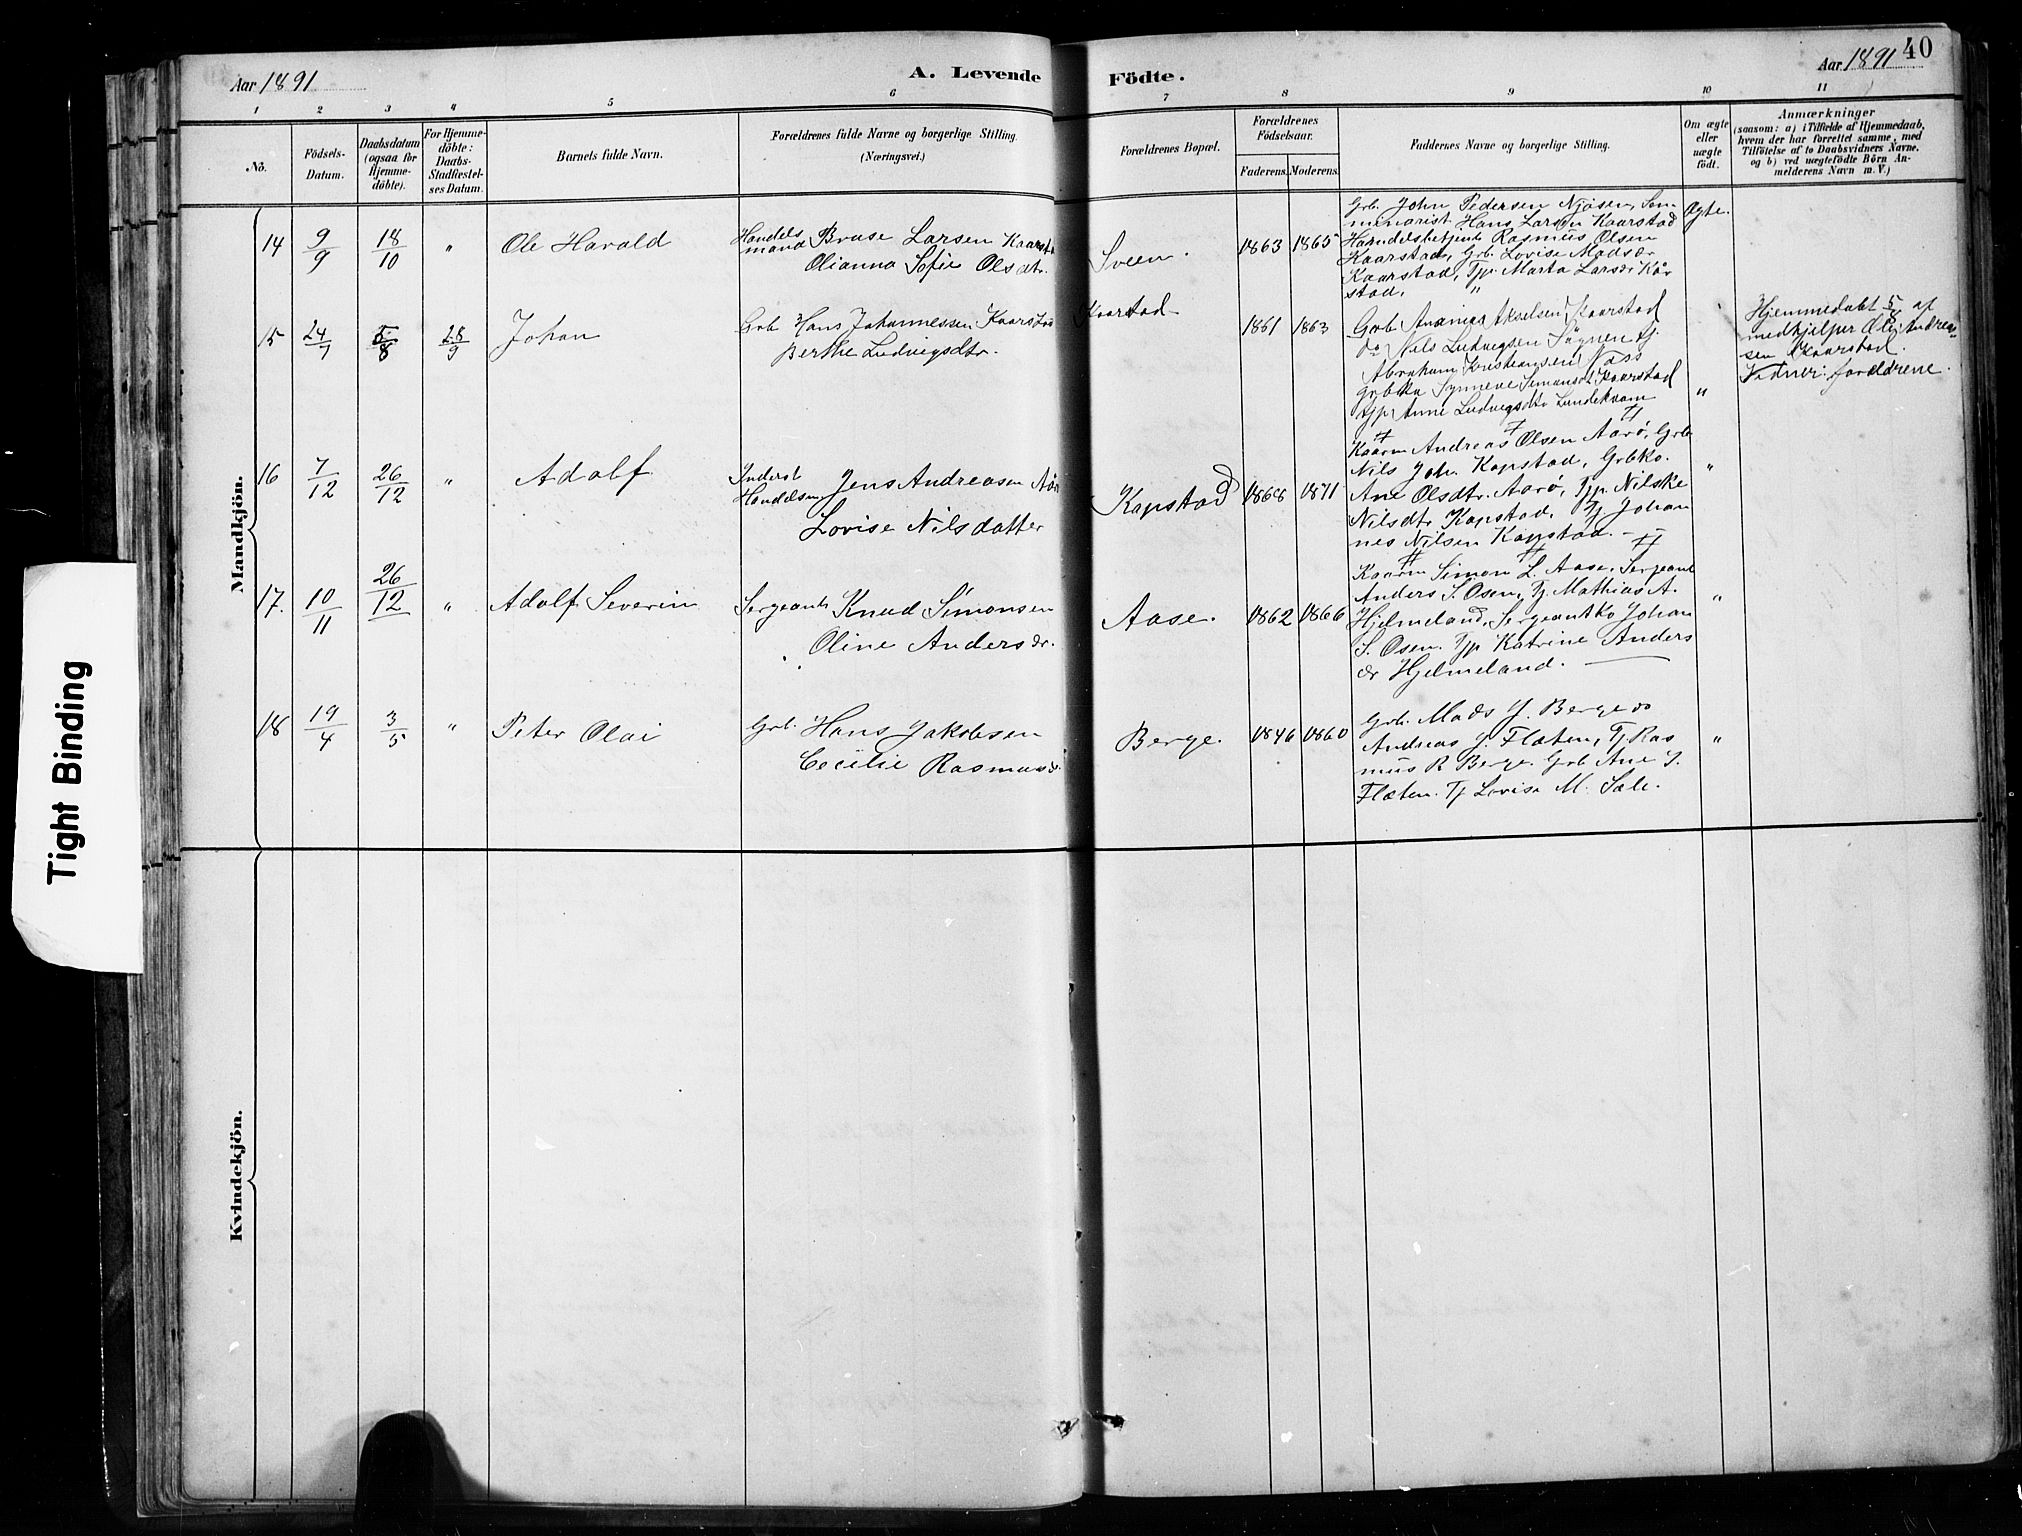 Aar 1891
A. Levende Födte.
Aar 1891
40
1 2 3 4 5 6 7 8 9 10 11
No.
Födsels-Datum.
Daabsdatum (ogsaa for Hjemme-döbte).
For Hjemme-döbte: Daabs-Stadfæstel-ses Datum.
Barnets fulde Navn.
Forældrenes fulde Navne og borgerlige Stilling.
(Næringsvei.)
Forældrenes Bopæl.
Forældrenes Födselsaar.
Faderens. Moderens.
Faddernes Navne og borgerlige Stilling.
Om ægte eller uægte födt.
Anmærkninger
(saasom: a) i Tilfælde af Hjemmedaab,
hvem der har forrettet samme, med
Tilföielse af to Daabsvidners Navne.
og b) ved uægtefödte Börn An-
melderens Navn m. V.)
Mandkjön.
14 9/9 18/10 " Ole Harald
Handelsmand Brase Larsen Kaarstad
Olianna Sofie Olsdtr.
Sveen. 1863 1865
Grb. John Pedersen Njøsen, Sem-
minarist Hans Larsen Kaarstad
Handelsbetjent Rasmus Olsen
Kaarstad, Grb. Lovise Madsdr
Kaarstad, Tjp. Marta Larsdr Kår
stad.
Ægte.
15 24/7 5/8 28/9 Johan
Grb Hans Johannessen Kaarstad
Berthe Ludvigsdtr.
Kaarstad 1861 1863
Grb Ananias Akselsen Kaarstad
do Nils Ludvigsen Søgnen Tj.
Abraham Kristiansen Nass
Grbka Synneve Simonsdt Kaarstad
Tjp Anne Ludvigsdtr Lundekvam
"
Hjemmedøbt 5/8 af
medhjelper Ole Andrea-
sen Kaarstad.
Vidner: forældrene.
16 7/12 26/12 " Adolf
Inderst Handelsm Jens Andreasen
Lovise Nilsdatter
Kapstad 1868 1871
Kaarm Andreas Olsen Aarø, Grb
Nils Joh. Kapstad, Grbko.
Ane Olsdtr. Aarø, Tjp. Nilske
Nilsdtr Kapstad, Tj Johan
nes Nilsen Kapstad. -
"
17. 10/11 26/12 " Adolf Severin
Sergeant Knud Simonsen
Oline Andersdr.
Aase. 1862 1866
Kaarm Simon L. Aase, Sergeant
Anders S. Osen, Tj. Mathias A.
Hjelmeland, Sergeantko Johan
S. Osen. Tjp Katrine Anders
dr Hjelmeland.
"
18 19/4 3/5 " Peter Olai
Grb. Hans Jakobsen
Cecilie Rasmusdr.
Berge. 1846 1860
Grb. Mads J. Berge do
Andreas J. Flæten, Tj Ras
mus R Berge. Grb Ane J.
Flæten. Tj Lovise M. Sæle.
"
Kvindekjön.
Tight Binding